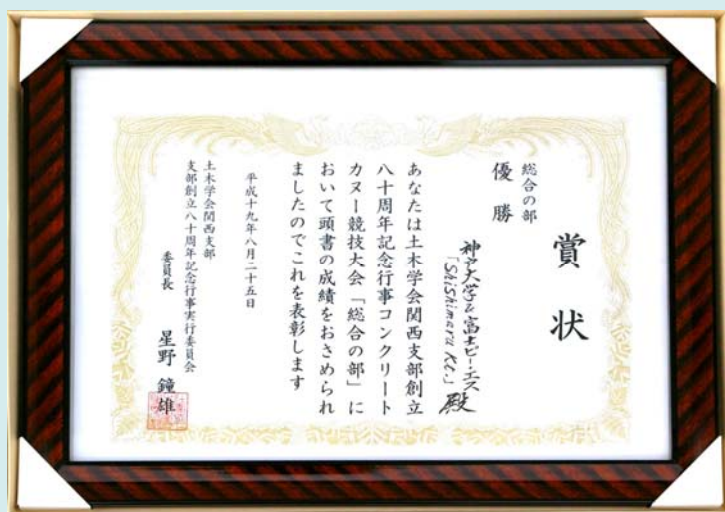 賞状
総合の部
優勝
神戸大学&富士ピー・エス
「Shishimaru Ke.」殿
あなたは土木学会関西支部創立
八十周年記念行事コンクリート
カヌー競技大会「総合の部」に
おいて頭書の成績をおさめられ
ましたのでこれを表彰します
平成十九年八月二十五日
土木学会関西支部
支部創立八十周年記念行事実行委員会
委員長 星野鐘雄